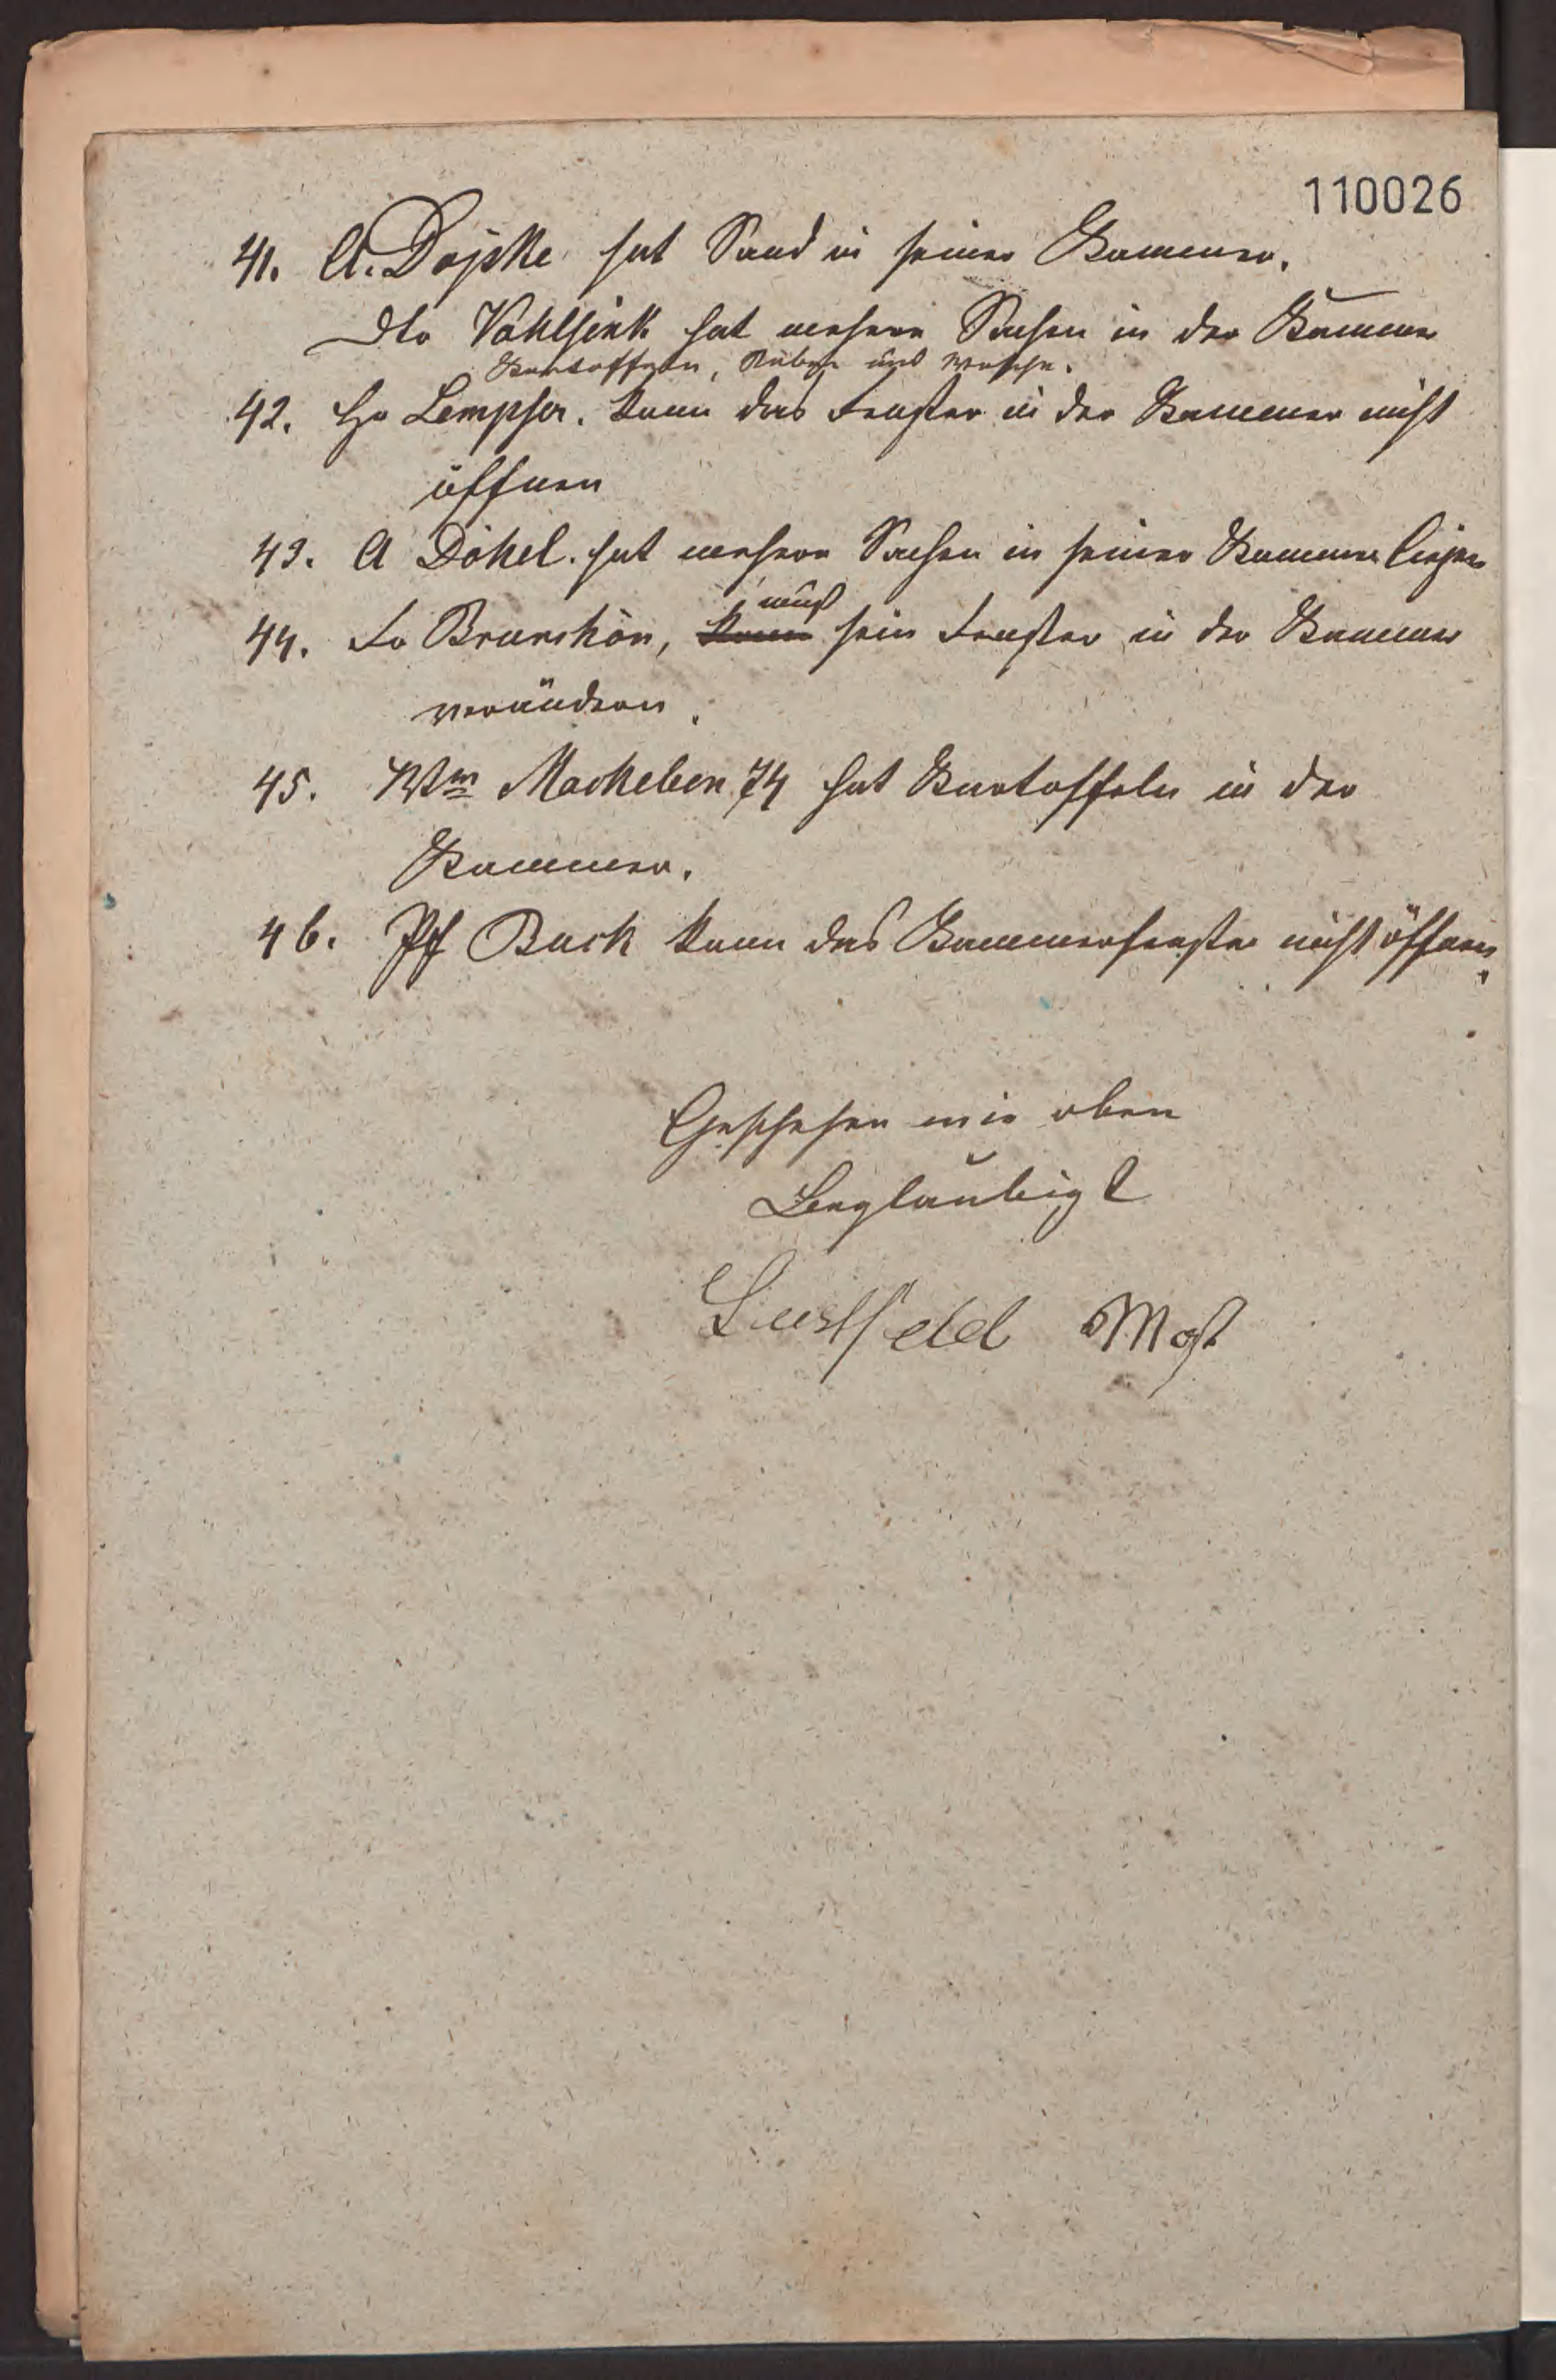 110026
41. A. Dojske hat Sand in seiner Kammer.
Dto Vahlsink hat mehere Sachen in der Kammer
Kartoffeln, Rüben und Wäsche.
42. Hr Lempfer. kann das Fenster in der Kammer nicht
öffnen
43. A Dökel. hat mehere Sachen in seiner Kammer liegen
muß
44. Fr Brunshön, kann sein Fenster in der Kammer
verändern.
45. Ww Mackeben 74 hat Kartoffeln in der
Kammer.
46. Buck kann das Kammerfenster nicht öffnen.
Geschehen wie oben
Beglaubigt
Lustfeld Most